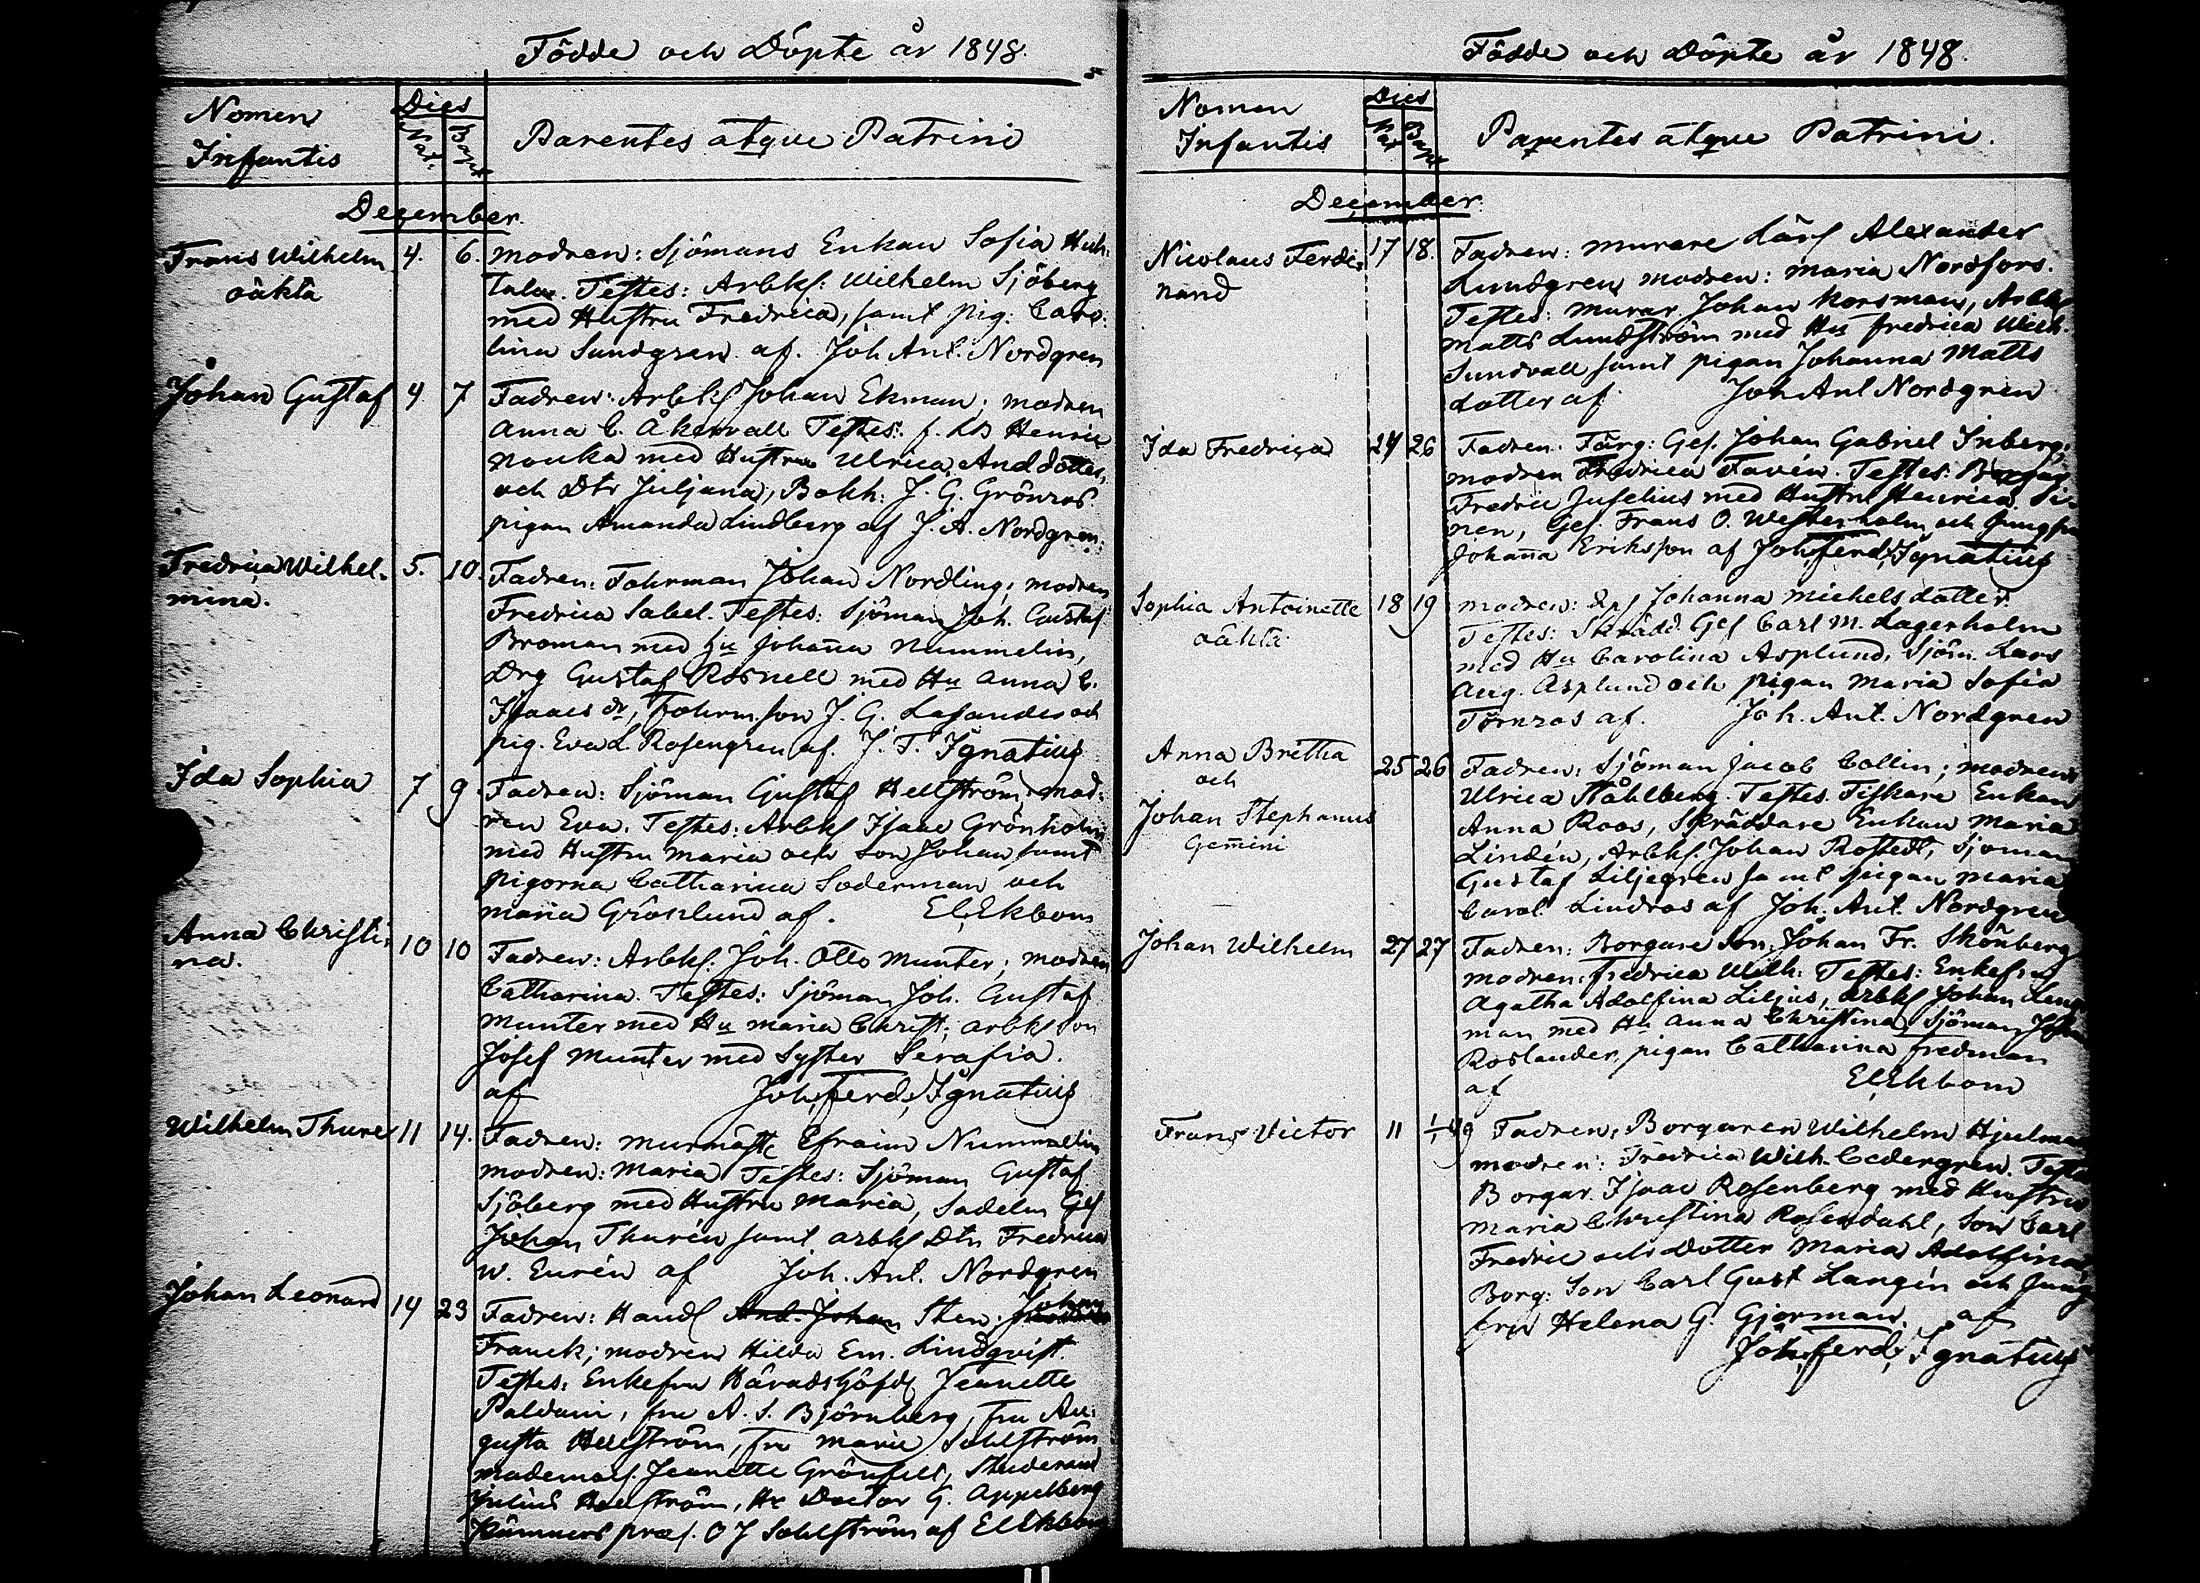 Födde och Döpte år 1848.
Nomen Infantis
Dies
Nat. Bapt.
Parentes atque Patrini
December.
Frans Wilhelm 4. 6. modren: Sjömans Enkan Sofia Huh-
oäkta
tala. Testes: Arbks: Wilhelm Sjöberg
med Hustru Fredrica, samt pig: Caro-
lina Sundgren af. Joh Ant. Nordgren
Johan Gustaf 4 7 Fadren: Arbks Johan Ekman; modren
Anna C. Åkervall Testes: f. Henric
Nouka med Hustru Ulrica And dotter,
och Dtr Juljana, Bokh: J. G. Grönros
pigan Amanda Lindberg af J. A. Nordgren.
Fredrica Wilhel- 5. 10. Fadren: Fohrman Johan Nordling; modren
mina.
Fredrica Sabel. Testes: Sjöman Joh. Gustaf
Broman med Hu Johanna Nummelin,
Drg Gustaf Rosnell med Hu Anna C.
Isaacs dr, Fohrm. son J. G. Lasander och
pig. Eva L. Rosengren af. J. F. Ignatius
Ida Sophia 7 9. Fadren: Sjöman Gustaf Hellström, mod-
ren Eva. Testes: Arbks Isaac Grönholm
med Hustru Maria och son Johan, samt
pigorna Catharina Soderman och
Maria Gröslund af. El. Ekbom
Anna Christi- 10 10 Fadren: Arbks: Joh. Otto Munter; modren
na.
Catharina. Testes: Sjöman Joh. Gustaf
Munter med Hu Maria Christ; arbks son
Josef Munter med Syster Serafia.
af Joh. Ferd. Ignatius
Wilhelm Thure 11 14. Fadren: murmäst Efraim Nummelin
modren: Maria Testes: Sjöman Gustaf
Sjöberg med Hustru Maria, Sadelm Ges
Johan Thurén samt arbks Dtr Fredrica
W. Eurén af Joh. Ant. Nordgren
Johan Leonard 14 23 Fadren: Handl And. Johan Sten: Johan
Franck; modren Hilda Em. Lindqvist.
Testes: Enkefru Häradshöfd Jeanette
Paldani, fru A. S. Björnberg, fru Au-
gusta Hellström, fru Marie Sohlström
mademois. Jeanette Grönfelt, Studerand
Julius Hellström, Hr Doctor G. Appelberg
Kämners præs. O J Sohlström af El Ekbom
Födde och Döpte år 1848.
Nomen Infantis
Dies
Nat Bapt
Parentes atque Patrini.
December.
Nicolaus Ferdi- 17 18. Fadren: murare Lärl Alexander
nand
Lundgren modren: Maria Nordfors.
Testes: murar Johan Norsman, Arbks
Matts Lundström med Hu Fredrica Wilh.
Sundvall samt pigan Johanna Matts
dotter af Joh Ant Nordgren
Ida Fredrica 24 26 Fadren. Färg: Ges. Johan Gabriel Inberg;
modren Fredrica Favén. Testes:
Fredric Juselius med Hustru Henrica
nen, Ges. Frans O. Westerholm och Jungfru
Johanna Eriksson af Joh. Ferd. Ignatius
Sophia Antoinette 18 19 modren: Johanna Michelsdotter.
oäkta
Testes: Skrädd. Ges Carl M. Lagerholm
med Hu Carolina Asplund, Sjöm. Lars
Aug. Asplund och pigan Maria Sofia
Törnros af. Joh. Ant. Nordgren
Anna Britha 25 26 Fadren: Sjöman Jacob Collin; modren
och
Ulrica Ståhlberg. Testes. Fiskare Enkan
Johan Stephanus
Anna Roos, Skräddare Enkan Maria
Gemini
Lindén, Arbks. Johan Rostedt, Sjöman
Gustaf Liljegren samt pigan Maria
Carol. Lindros af Joh. Ant. Nordgren
Johan Wilhelm 27 27 Fadren: Borgare Son. Johan Fr. Skönberg
modren: Fredrica Wilh: Testes: Enkefru
Agatha Adolfina Liljus, arbks Johan Leng-
man med Hu Anna Christina, Sjöman Johan
Roslander, pigan Catharina Fredman
af El Ekbom
Frans Victor 11 1/1 49 Fadren: Borgaren Wilhelm Hjulman
modren: Fredrica Wilh. Cedergren. Testes
Borgar. Isaac Rosenberg med Hustru
Maria Christina Rosendahl, Son Carl
Fredric och Dotter Maria Adolfina,
Borg: Son Carl Gust Langén och Jung-
fru Helena G. Gjerman. af
Joh. Ferd. Ignatius